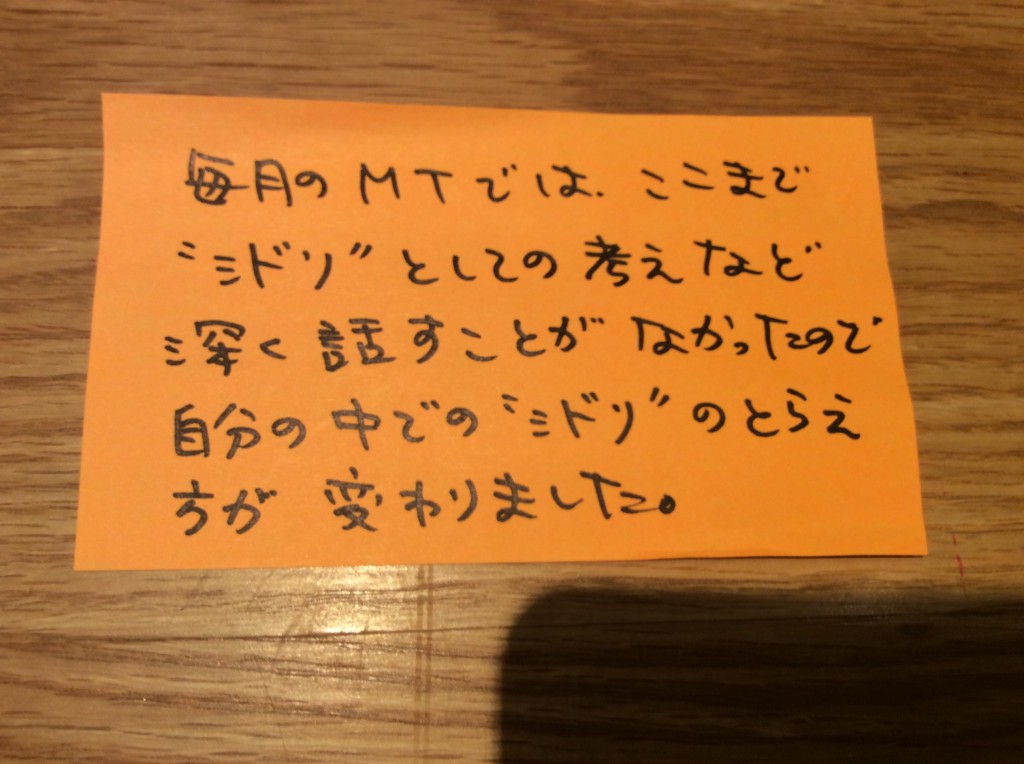 毎月のMTでは、ここまで
“ミドリ”としての考えなど
深く話すことがなかったので
自分の中での“ミドリ”のとらえ
方が変わりました。